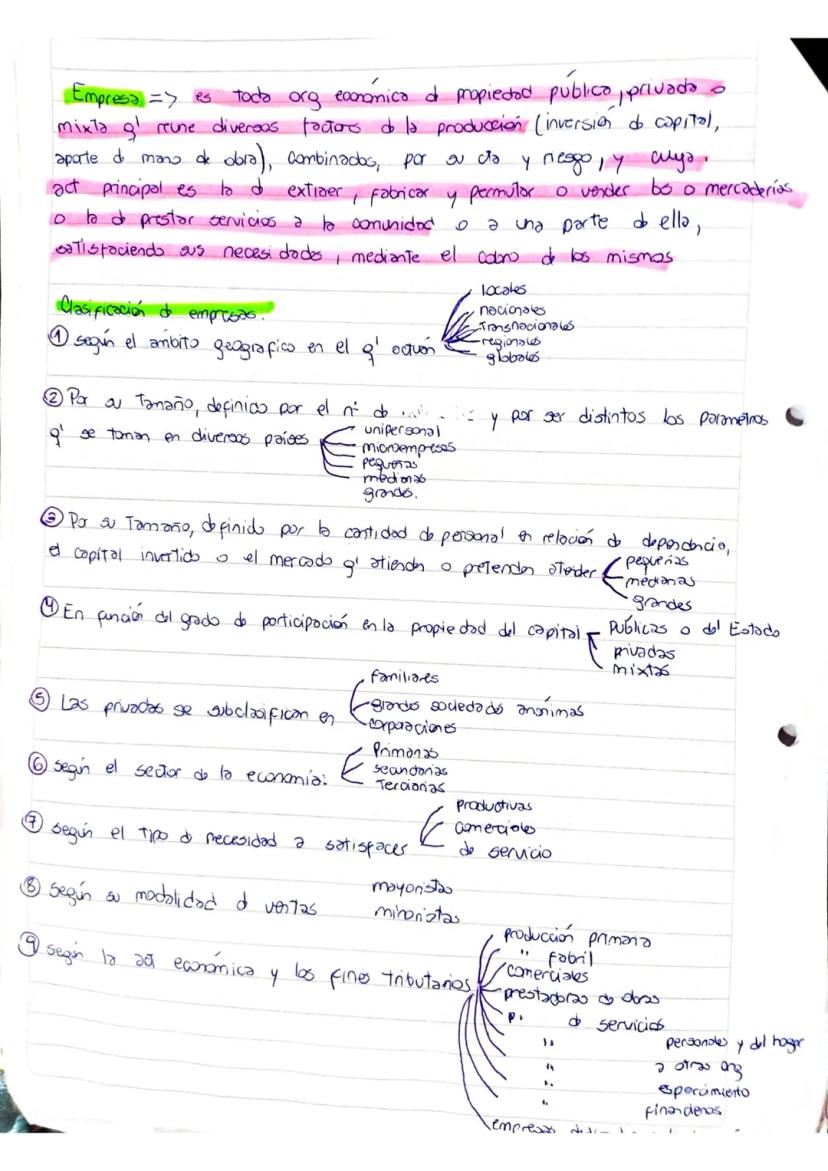 Empresa => es toda org económica d propiedad público, privada o
mixta q' reune diversos factores d la producción (inversión d capital,
aporte d mano de obra), combinados, por su cta y riesgo, y cuya
act principal es la d extraer, fabricar y permutar o vender bs o mercaderías
o la d prestar servicios a la comunidad o a una parte d ella,
satisfaciendo sus necesidades, mediante el cobro d los mismos
Clasificación d empresas.
① según el ámbito geografico en el q' actúan
locales
nacionales
transnacionales
regionales
globales
② Por su Tamaño, definido por el nº d y por ser distintos los parametros
q' se toman en diversos países
unipersonal
microempresas
pequeñas
medianas
grandes.
③ Por su Tamaño, definido por la cantidad de personal en relación d dependencia,
el capital invertido o el mercado q' atienden o pretenden atender
pequeñas
medianas
grandes
④ En función del grado de participación en la propiedad del capital
Públicas o del Estado
privadas
mixtas
⑤ Las privadas se subclasifican en
familiares
grandes sociedades anónimas
corporaciones
⑥ según el sector de la economía:
Primarias
secundarias
Terciarias
⑦ según el tipo d necesidad a satisfacer
Productivas
comerciales
de servicio
⑧ según su modalidad d ventas
mayoristas
minoristas
⑨ según la act económica y los fines tributarios
producción primaria
" fabril
comerciales
prestadoras de obras
p. d servicios
" personales y del hogar
" a otras org
" esparcimiento
" financieros
empresas